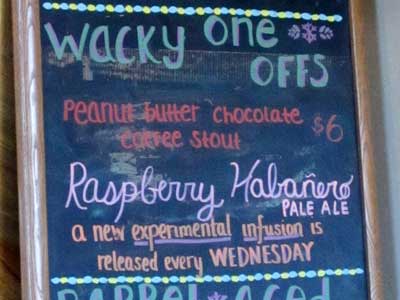 Wacky one
OFFS
Peanut butter chocolate
coffee stout $6
Raspberry Habañero
PALE ALE
a new experimental infusion is
released every WEDNESDAY
BARREL AGED